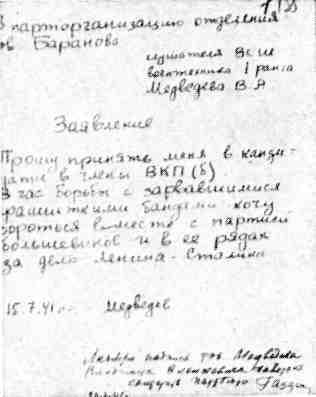 В парторганизацию отделения
тов Баранова
слушателя
воентехника I ранга
Медведева В.А
Заявление
Прошу принять меня в канди-
даты в члены ВКП(б).
В час борьбы с зарвавшимися
фашистскими бандами хочу
бороться вместе с партией
большевиков и в ее рядах
за дело Ленина-Сталина
15.7.41 Медведев
подпись тов Медведева